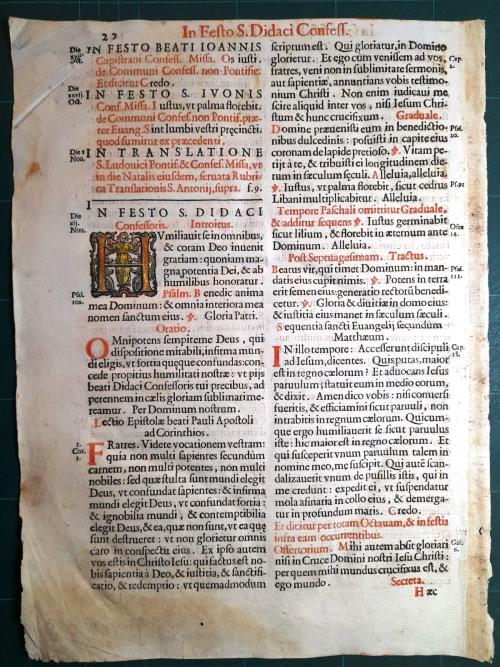 22
In Festo S. Didaci Confess.
Die
xxiij.
Oct.
IN FESTO BEATI IOANNIS
Capistrani Confess. Missa. Os iusti.
de Communi Confess. non Pontific.
Et dicitur Credo.
Die
xxvij.
Oct.
IN FESTO S. IVONIS
Conf. Missa. Iustus, vt palma florebit.
de Communi Confes. non Pontif. præ-
ter Euang. Sint lumbi vestri pręcincti.
quod sumitur ex præcedenti.
Die
Nou.
IN TRANSLATIONE
S. Ludouici Pontif. & Confess. Missa, vt
in die Natalis eiusdem, seruata Rubri-
ca Translationis S. Antonij, supra. f.9.
Die
Nou.
IN FESTO S. DIDACI
Confessoris. Introitus.
HVmiliaui te in omnibus,
& coram Deo inuenit
gratiam: quoniam mag-
na potentia Dei, & ab
humilibus honoratur.
Psal.
102.
Psalm. Benedic anima
mea Dominum: & omnia interiora mea
nomen sanctum eius. ℣. Gloria Patri.
Oratio.
OMnipotens sempiterne Deus, qui
dispositione mirabili, infirma mun-
di eligis, vt fortia quęque confundas: con-
cede propitius humilitati nostræ: vt pijs
beati Didaci Confessoris tui precibus, ad
perennem in cælis gloriam sublimari me-
reamur. Per Dominum nostrum.
Lectio Epistolæ beati Pauli Apostoli
ad Corinthios.
1.
Cor.
1.
FRatres. Videte vocationem vestram:
quia non multi sapientes secundùm
carnem, non multi potentes, non multi
nobiles: sed quæ stulta sunt mundi elegit
Deus, vt confundat sapientes: & infirma
mundi elegit Deus, vt confundat fortia:
& ignobilia mundi, & contemptibilia
elegit Deus, & ea, quæ non sunt, vt ea quę
sunt destrueret: vt non glorietur omnis
caro in conspectu eius. Ex ipso autem
vos estis in Christo Iesu: qui factus est no-
bis sapientia à Deo, & iustitia, & sanctifi-
catio, & redemptio: vt quemadmodum
scriptum est. Qui gloriatur, in Domino
glorietur. Et ego cum venissem ad vos,
Cap.
2.
fratres, veni non in sublimitate sermonis,
aut sapientiæ, annuntians vobis testimo-
nium Christi. Non enim iudicaui me
scire aliquid inter vos, nisi Iesum Chris-
tum & hunc crucifixum. Graduale.
Domine præuenisti eum in benedictio-
Psal.
20.
nibus dulcedinis: posuisti in capite eius
coronam de lapide precioso. ℣. Vitam pe-
tijt à te, & tribuisti ei longitudinem die-
um in sæculum sęculi. Alleluia, alleluia.
℣. Iustus, vt palma florebit, sicut cedrus
Psal. 91
Libani multiplicabitur. Alleluia.
Tempore Paschali omittitur Graduale,
& additur sequens ℣. Iustus germinabit
Osee
14.
sicut lilium, & florebit in æternum ante
Dominum. Alleluia.
Post Septuagesimam. Tractus.
Beatus vir, qui timet Dominum: in man-
Psal.
111.
datis eius cupit nimis. ℣. Potens in terra
erit semen eius: generatio rectorū benedi-
cetur. ℣. Gloria & diuitiæ in domo eius:
& iustitia eius manet in sæculum sæculi.
Sequentia sancti Euangelij secundum
Matthæum.
IN illo tempore: Accesserunt discipuli
Cap.
18.
ad Iesum, dicentes. Quis putas, maior
est in regno cælorum? Et aduocans Iesus
paruulum, statuit eum in medio eorum,
& dixit. Amen dico vobis: nisi conuersi
fueritis, & efficiamini sicut paruuli, non
intrabitis in regnum cælorum. Quicum-
que ergo humiliauerit se sicut paruulus
iste: hic maior est in regno cælorum. Et
qui susceperit vnum paruulum talem in
nomine meo, me suscipit. Qui autē scan-
dalizauerit vnum de pusillis istis, qui in
me credunt: expedit ei, vt suspendatur
mola asinaria in collo eius, & demerga-
tur in profundum maris. Credo.
Et dicitur per totam Octauam, & in festis
infra eam occurrentibus.
Offertorium. Mihi autem absit gloriari
Gal.
6.
nisi in Cruce Domini nostri Iesu Christi:
per quem mihi mundus crucifixus est, &
ego mundo. Secreta.
Hæc